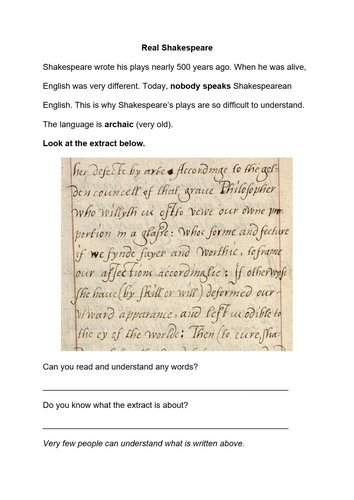 Real Shakespeare
Shakespeare wrote his plays nearly 500 years ago. When he was alive,
English was very different. Today, nobody speaks Shakespearean
English. This is why Shakespeare's plays are so difficult to understand.
The language is archaic (very old).
Look at the extract below.
her defects by arte Accordinge to the gol-
den councell of that grave Philosopher
who willyth us oft to vewe our owne pro-
portion in a glasse: whos forme and fecture
if we fynde fayer and worthie, to frame
our affections accordinglie: if otherwyse
she have (by skill or will) deformed our
wward apparance, and left us odible to
the ey of the worlde: Then (to cure, sha-
Can you read and understand any words?
Do you know what the extract is about?
Very few people can understand what is written above.